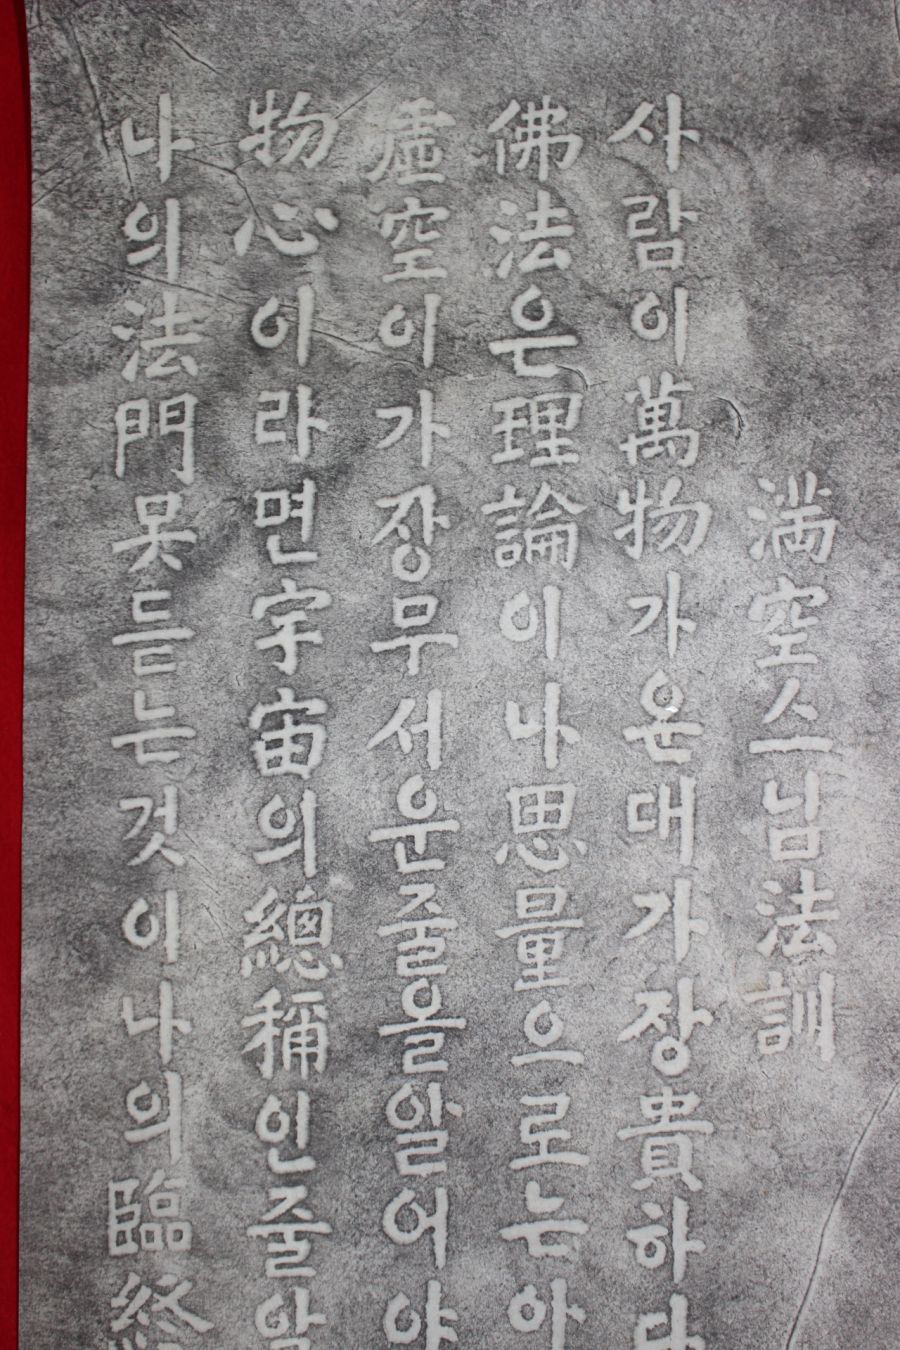 満空스님法訓
사람이萬物가운대가장貴하다
佛法은理論이나思量으로는아
虛空이가장무서운줄을알어야
物心이라면宇宙의總稱인줄알
나의法門못듣는것이나의臨終